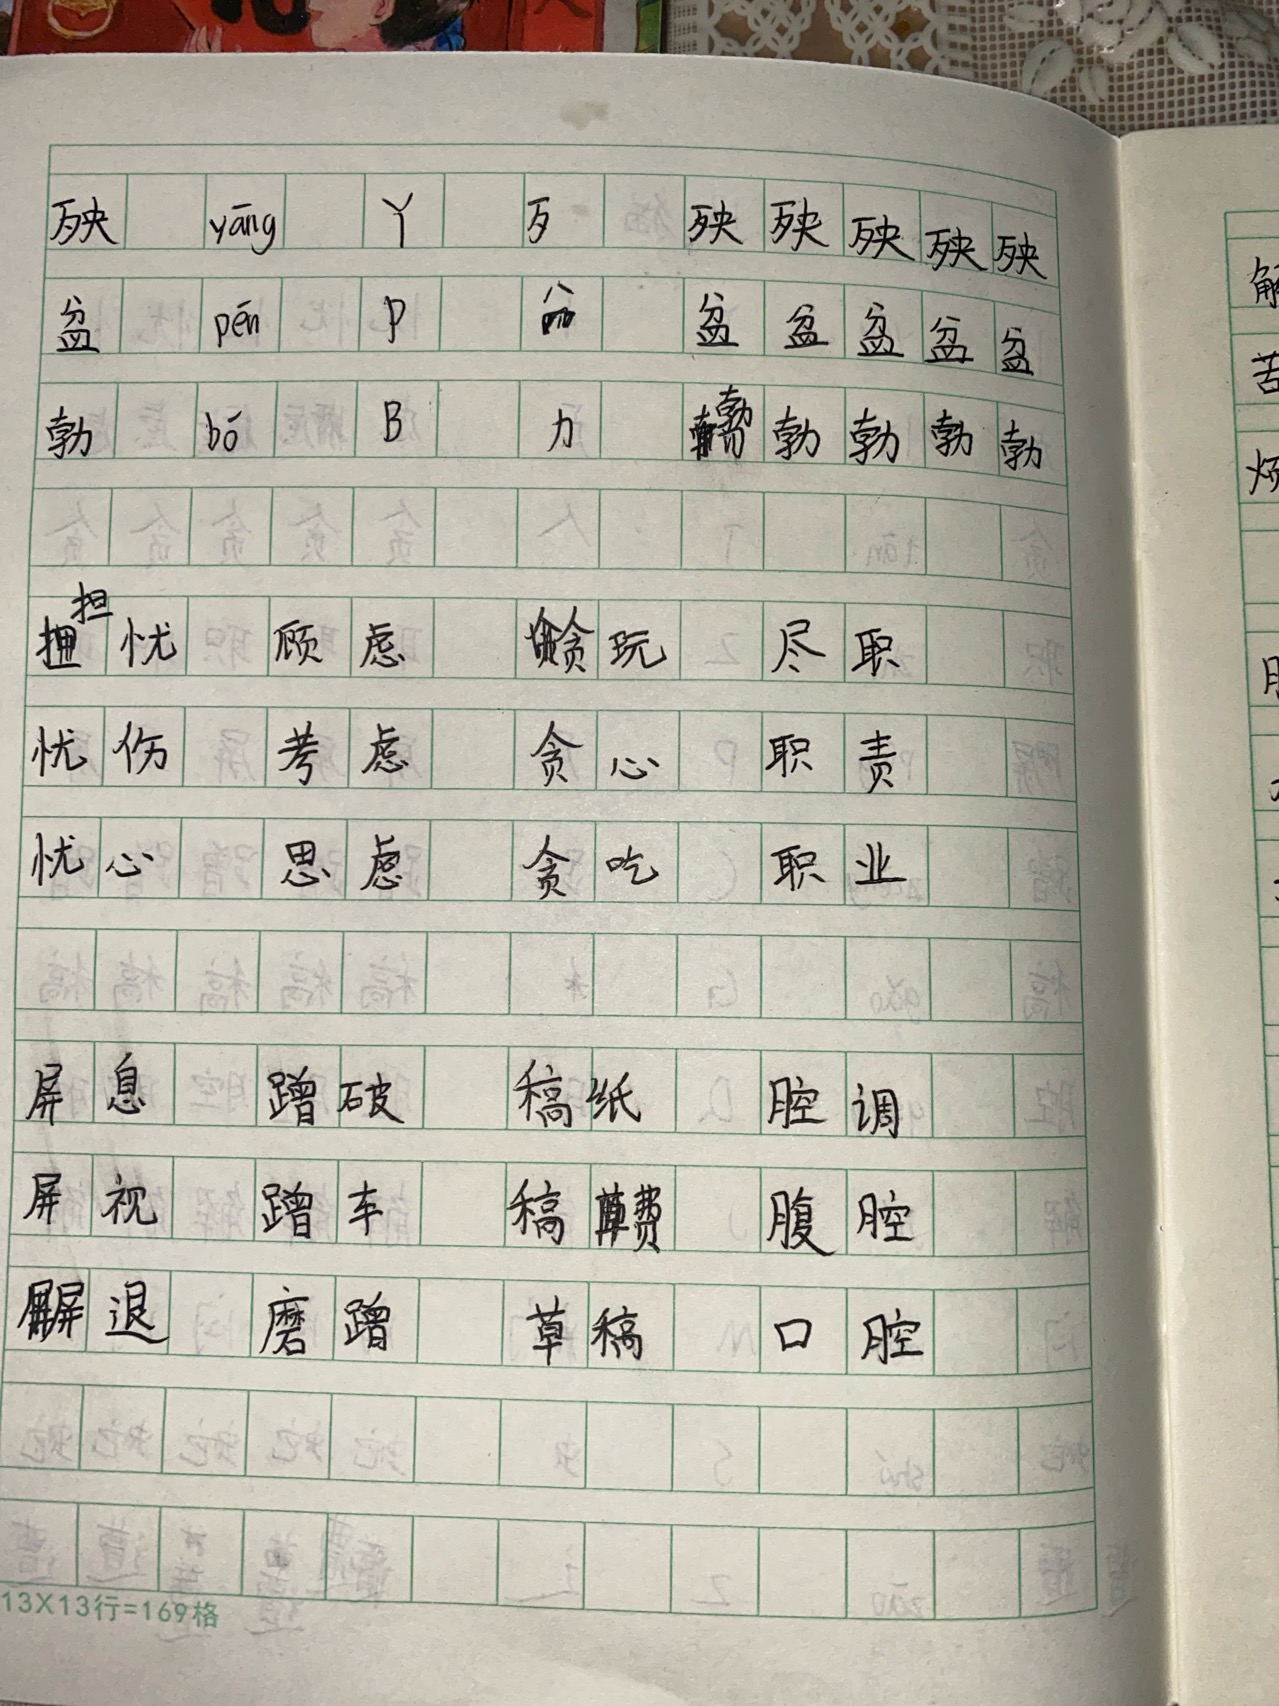 殃 yāng 丫 歹 殃 殃 殃 殃 殃
盆 pén P 盆 盆 盆 盆 盆
勃 bó B 力 勃 勃 勃 勃 勃
担忧 顾虑 贪玩 尽职
忧伤 考虑 贪心 职责
忧心 思虑 贪吃 职业
屏息 蹭破 稿纸 腔调
屏视 蹭车 稿费 腹腔
屏退 磨蹭 草稿 口腔
13X13行=169格